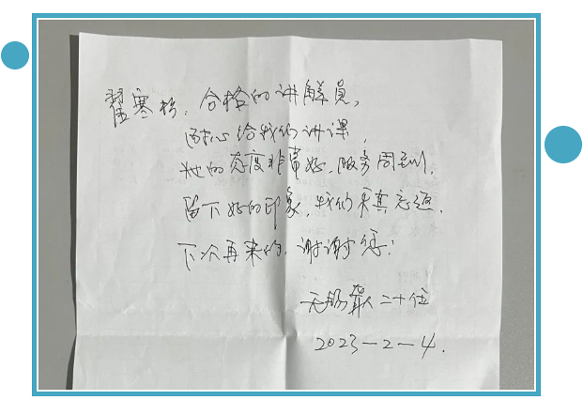 翟寒杉,合格的讲解员,
耐心给我们讲课,
她的态度非常好,服务周到,
留下好的印象,我们采真忘返,
下次再来的,谢谢您!
无锡 人二十位
2023-2-4.